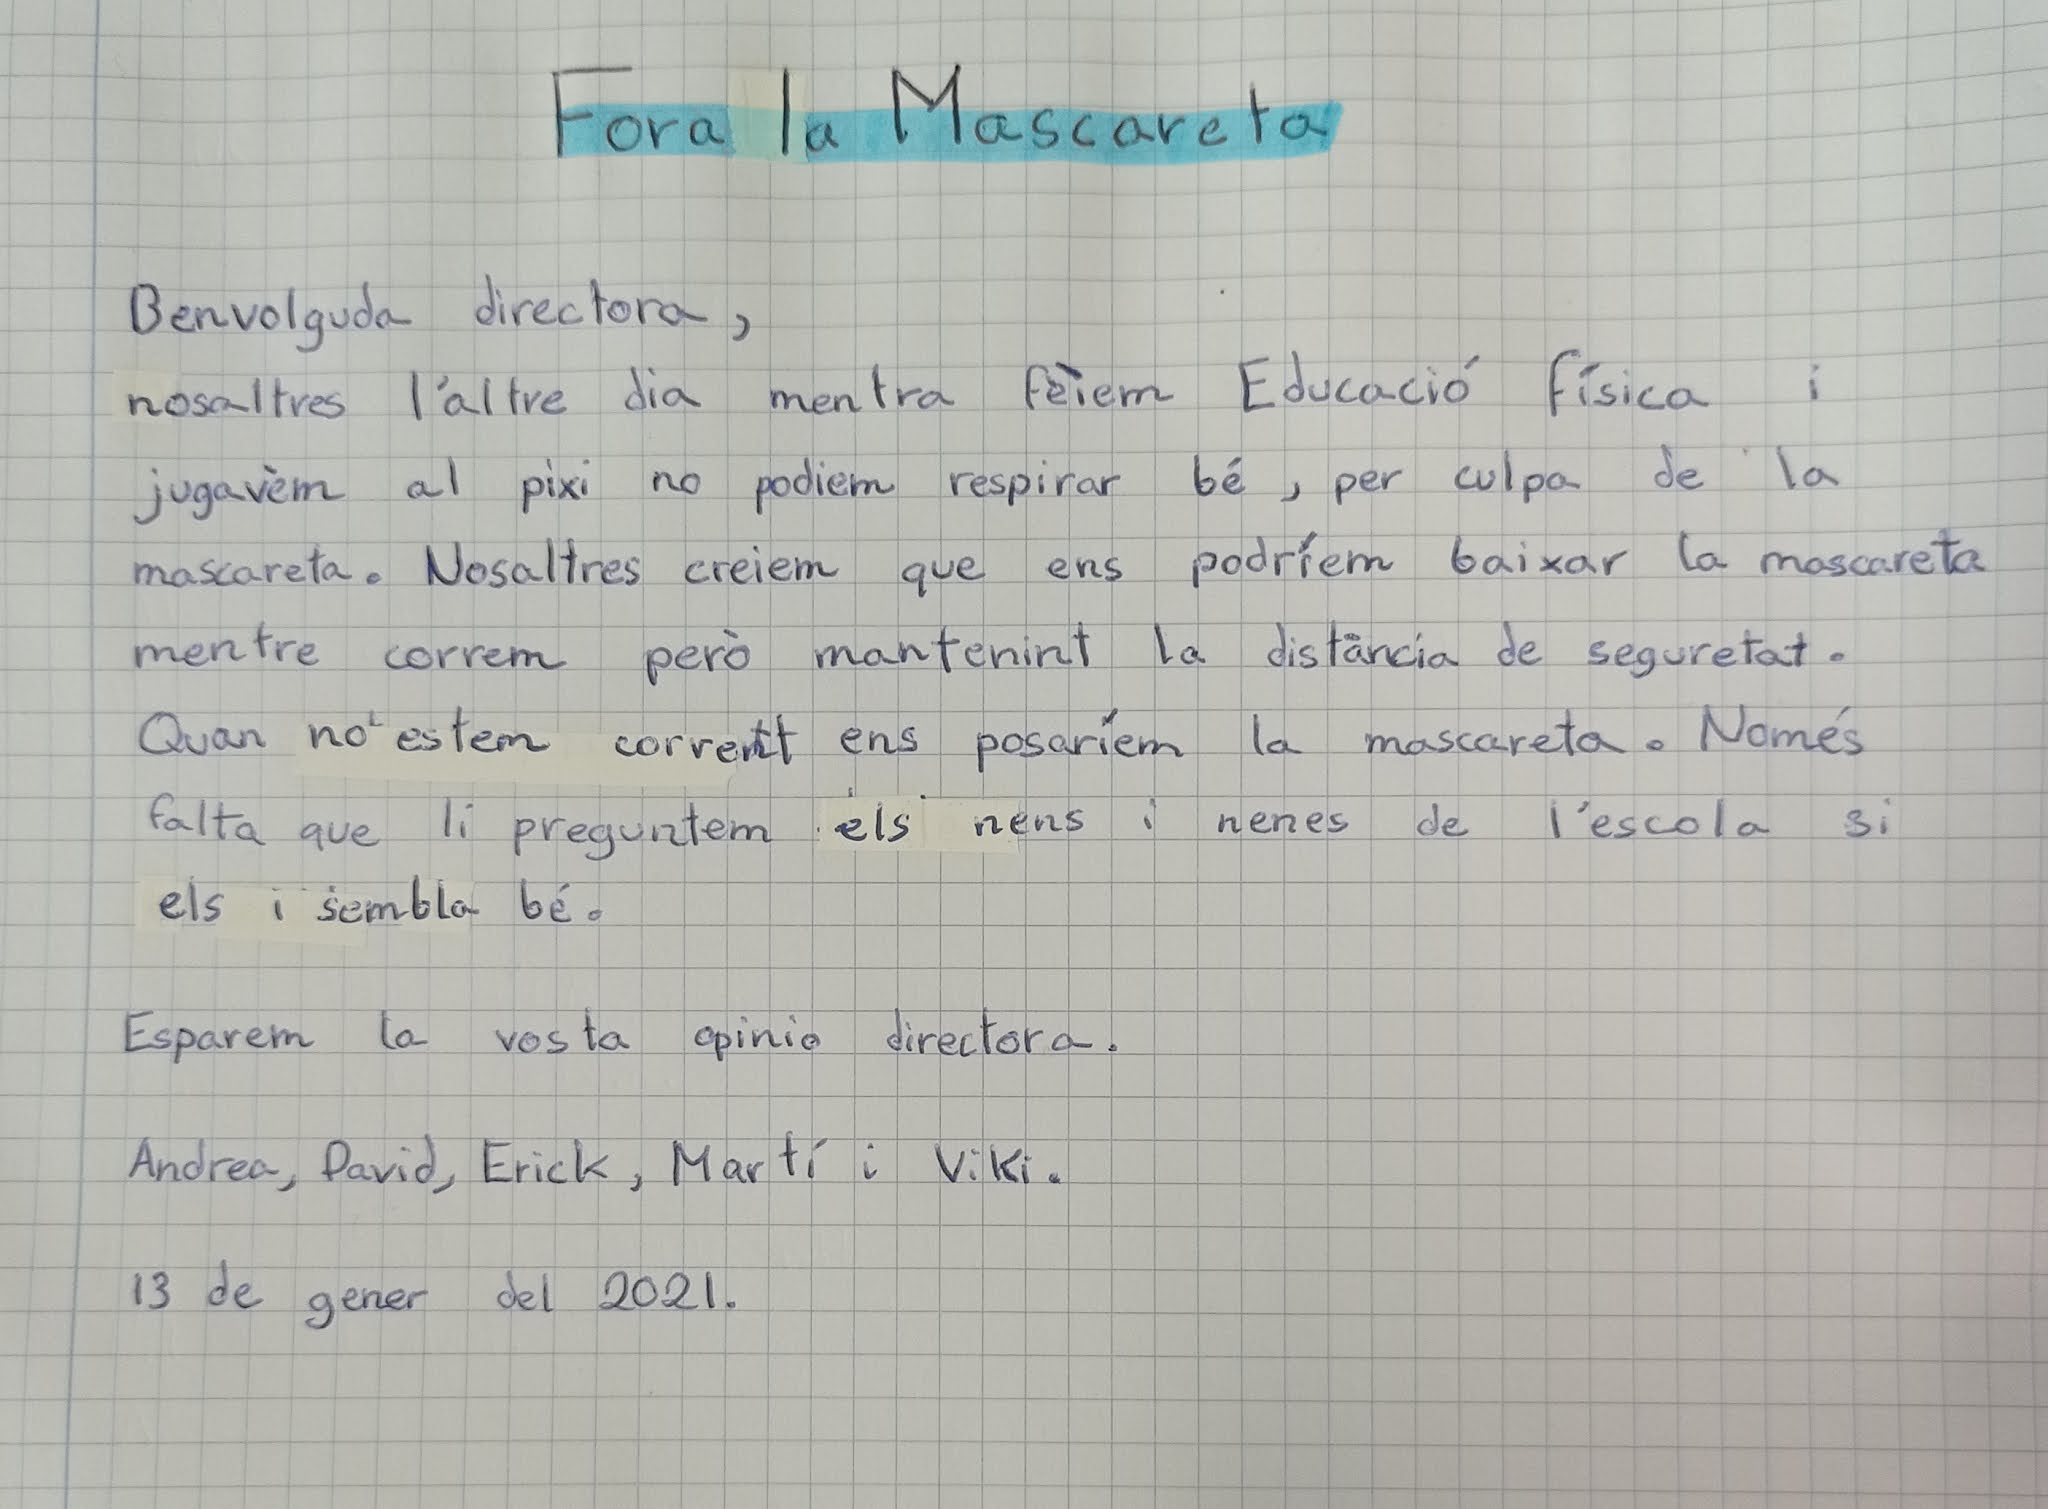 Fora la Mascareta
Benvolguda directora,
nosaltres l'altre dia mentra fèiem Educació física i
jugavèm al pixi no podiem respirar bé, per culpa de la
mascareta. Nosaltres creiem que ens podríem baixar la mascareta
mentre correm però mantenint la distància de seguretat.
Quan no estem corrent ens posaríem la mascareta. Només
falta que li preguntem els nens i nenes de l'escola si
els i sembla bé.
Esparem la vosta opinio directora.
Andrea, David, Erick, Martí i Viki.
13 de gener del 2021.